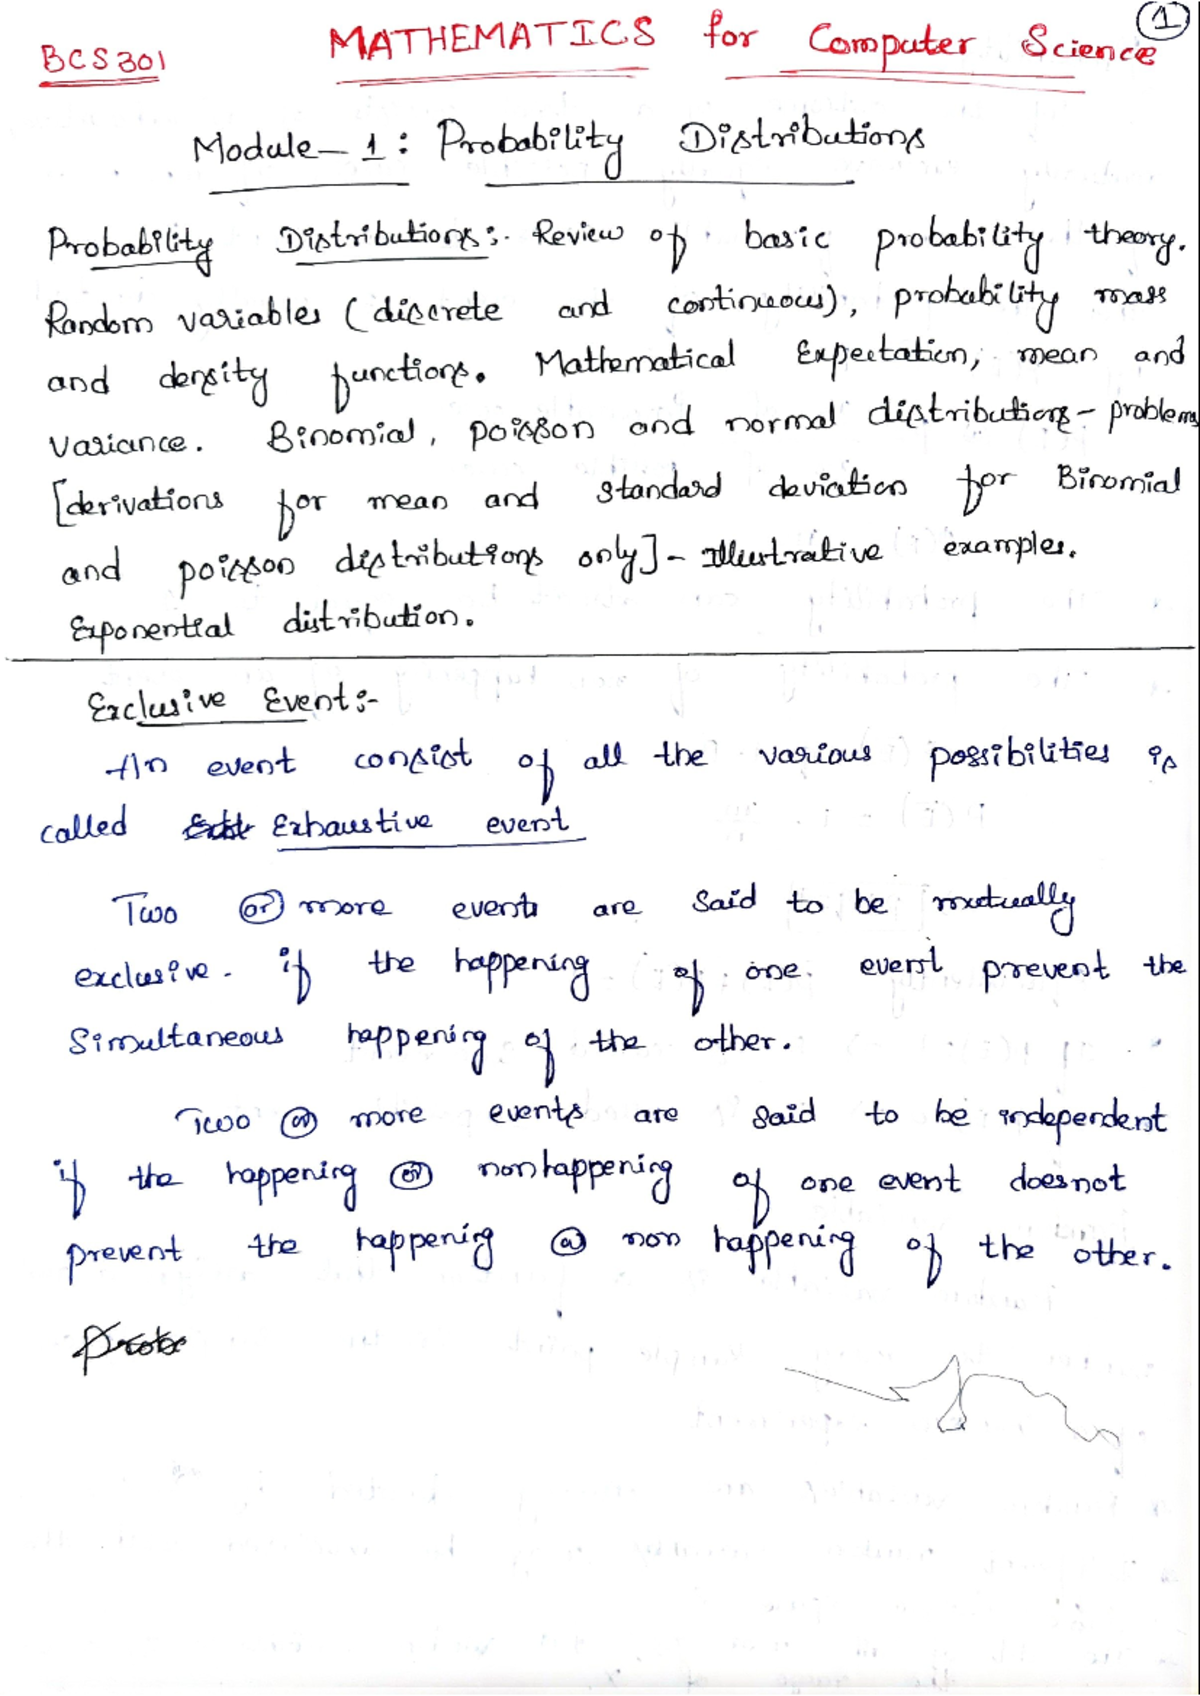 1
BCS301 MATHEMATICS for Computer Science
Module-1: Probability Distributions
Probability Distributions:- Review of basic probability theory.
Random variables (discrete and continuous), probability mass
and density functions. Mathematical Expectation, mean and
variance. Binomial, poisson and normal distributions - problems
[derivations for mean and standard deviation for Binomial
and poisson distributions only] - Illustrative examples.
Exponential distribution.
Exclusive Event:-
An event consist of all the various possibilities is
called Exhaustive event
Two or more events are said to be mutually
exclusive. if the happening of one event prevent the
Simultaneous happening of the other.
Two or more events are said to be independent
if the happening or nonhappening of one event doesnot
prevent the happening or non happening of the other.